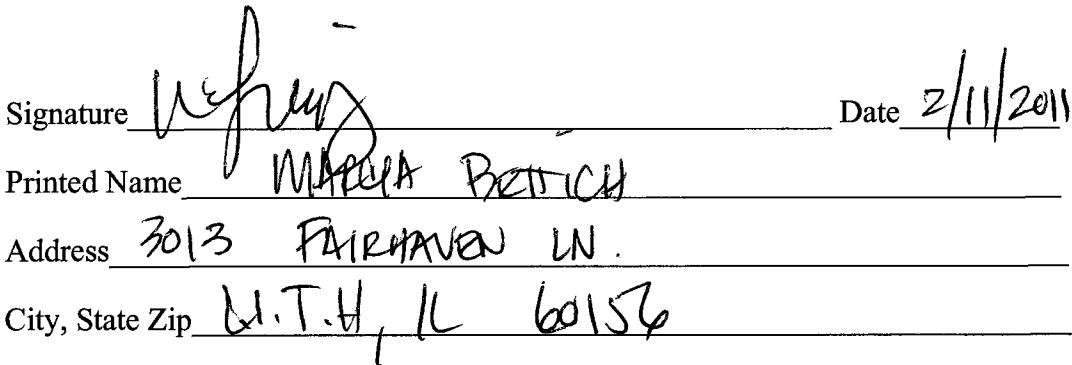 Signature Date 2/11/2011
Printed Name BETTICH
Address 3013 FAIRHAVEN LN.
City, State Zip L.I.T.H, IL 60156